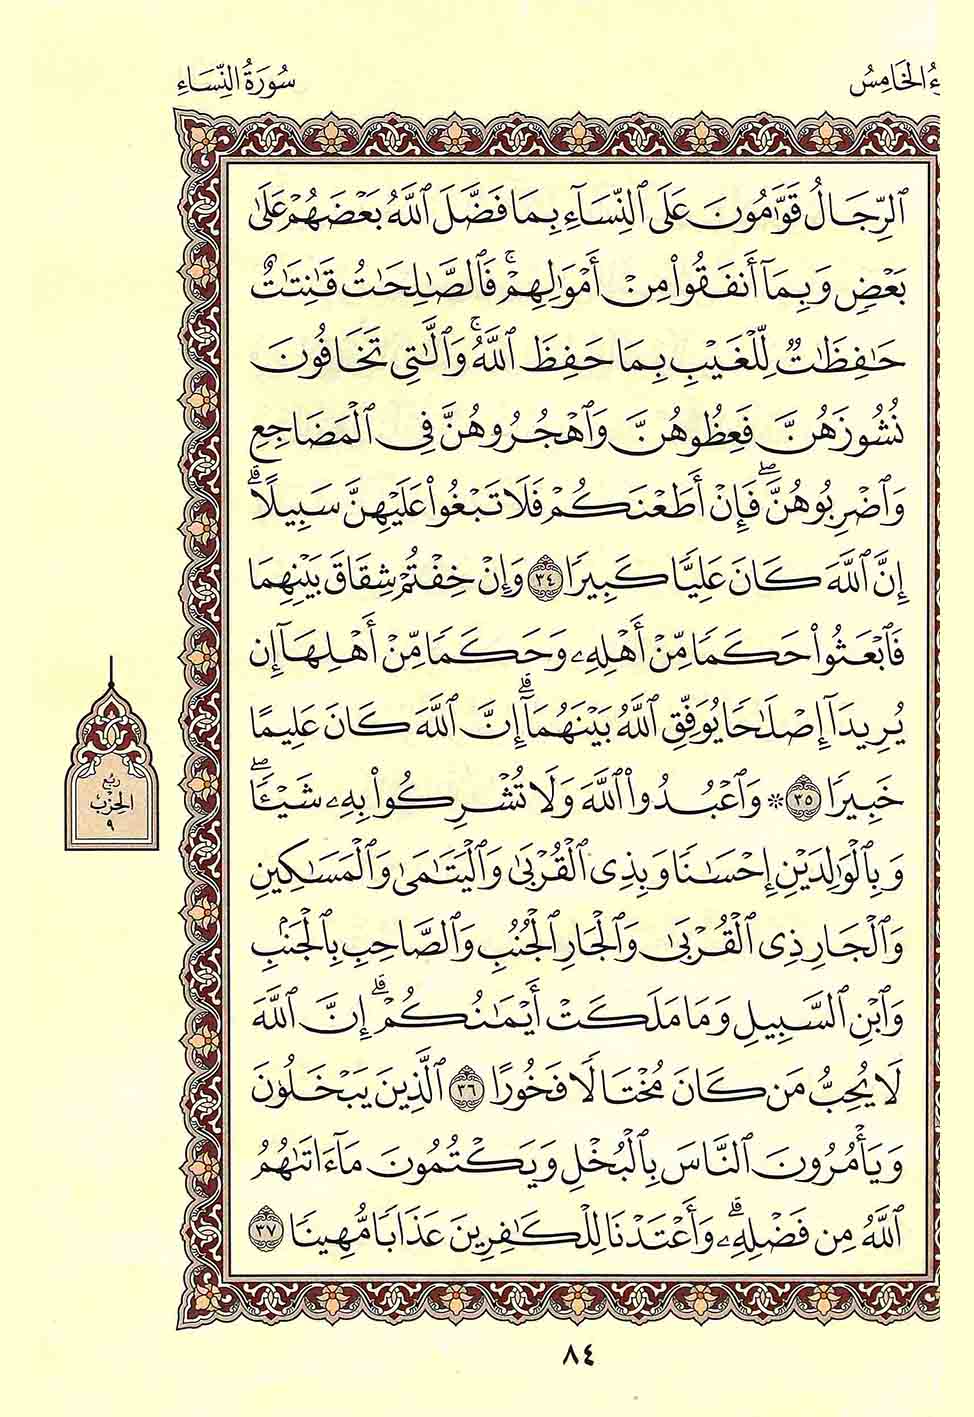 سُورَةُ النِّسَاءِ
ءُ الخَامِسُ
ٱلرِّجَالُ قَوَّٰمُونَ عَلَى ٱلنِّسَآءِ بِمَا فَضَّلَ ٱللَّهُ بَعْضَهُمْ عَلَىٰ
بَعْضٍ وَبِمَآ أَنفَقُوا۟ مِنْ أَمْوَٰلِهِمْۚ فَٱلصَّٰلِحَٰتُ قَٰنِتَٰتٌ
حَٰفِظَٰتٌ لِّلْغَيْبِ بِمَا حَفِظَ ٱللَّهُۚ وَٱلَّٰتِى تَخَافُونَ
نُشُوزَهُنَّ فَعِظُوهُنَّ وَٱهْجُرُوهُنَّ فِى ٱلْمَضَاجِعِ
وَٱضْرِبُوهُنَّۖ فَإِنْ أَطَعْنَكُمْ فَلَا تَبْغُوا۟ عَلَيْهِنَّ سَبِيلًاۗ
إِنَّ ٱللَّهَ كَانَ عَلِيًّا كَبِيرًا ٣٤ وَإِنْ خِفْتُمْ شِقَاقَ بَيْنِهِمَا
فَٱبْعَثُوا۟ حَكَمًا مِّنْ أَهْلِهِۦ وَحَكَمًا مِّنْ أَهْلِهَآ إِن
يُرِيدَآ إِصْلَٰحًا يُوَفِّقِ ٱللَّهُ بَيْنَهُمَآۗ إِنَّ ٱللَّهَ كَانَ عَلِيمًا
خَبِيرًا ٣٥ * وَٱعْبُدُوا۟ ٱللَّهَ وَلَا تُشْرِكُوا۟ بِهِۦ شَيْـًٔاۖ
وَبِٱلْوَٰلِدَيْنِ إِحْسَٰنًا وَبِذِى ٱلْقُرْبَىٰ وَٱلْيَتَٰمَىٰ وَٱلْمَسَٰكِينِ
وَٱلْجَارِ ذِى ٱلْقُرْبَىٰ وَٱلْجَارِ ٱلْجُنُبِ وَٱلصَّاحِبِ بِٱلْجَنۢبِ
وَٱبْنِ ٱلسَّبِيلِ وَمَا مَلَكَتْ أَيْمَٰنُكُمْۗ إِنَّ ٱللَّهَ
لَا يُحِبُّ مَن كَانَ مُخْتَالًا فَخُورًا ٣٦ ٱلَّذِينَ يَبْخَلُونَ
وَيَأْمُرُونَ ٱلنَّاسَ بِٱلْبُخْلِ وَيَكْتُمُونَ مَآ ءَاتَىٰهُمُ
ٱللَّهُ مِن فَضْلِهِۦۗ وَأَعْتَدْنَا لِلْكَٰفِرِينَ عَذَابًا مُّهِينًا ٣٧
رُبْع
الحِزْب
٩
٨٤